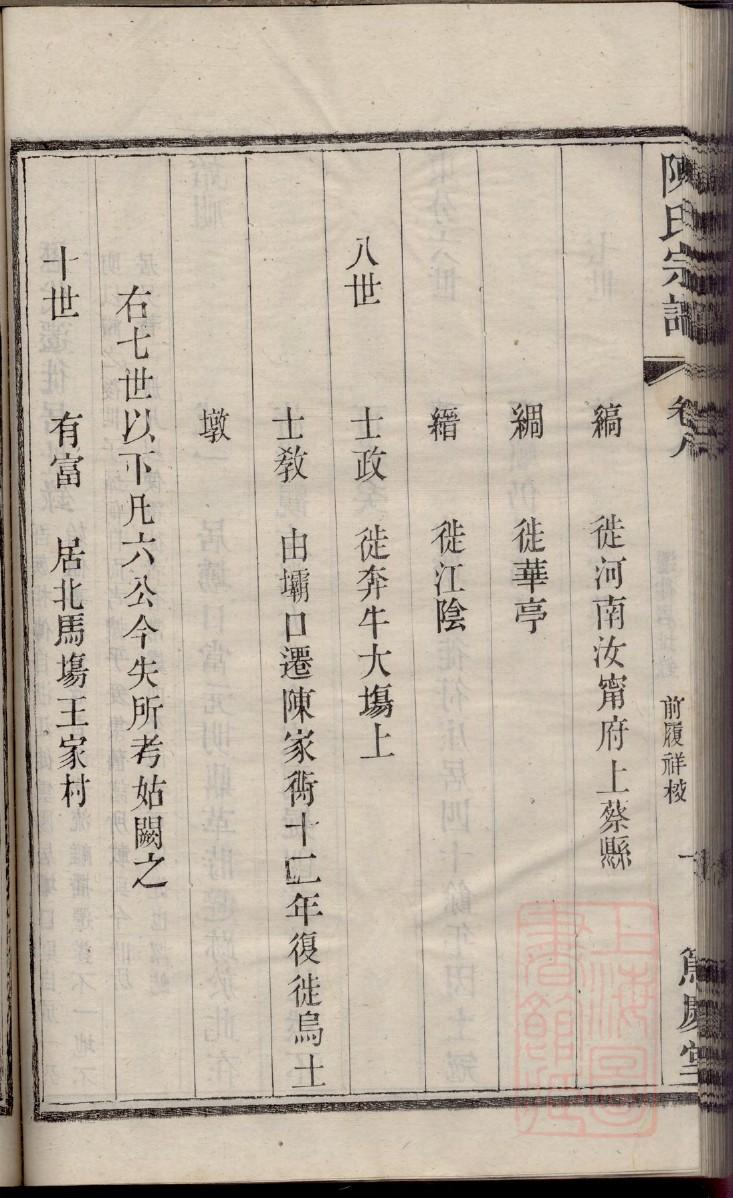 陳氏宗譜
卷八
前履祥梭
一
篤慶堂
縞 徙河南汝甯府上蔡縣
綢 徙華亭
縉 徙江陰
八世 士政 徙奔牛大塲上
士教 由壩口遷陳家衖十二年復徙烏土
墩
右七世以下凡六公今失所考姑闕之
十世 有富 居北馬塲王家村
上海圖書館藏